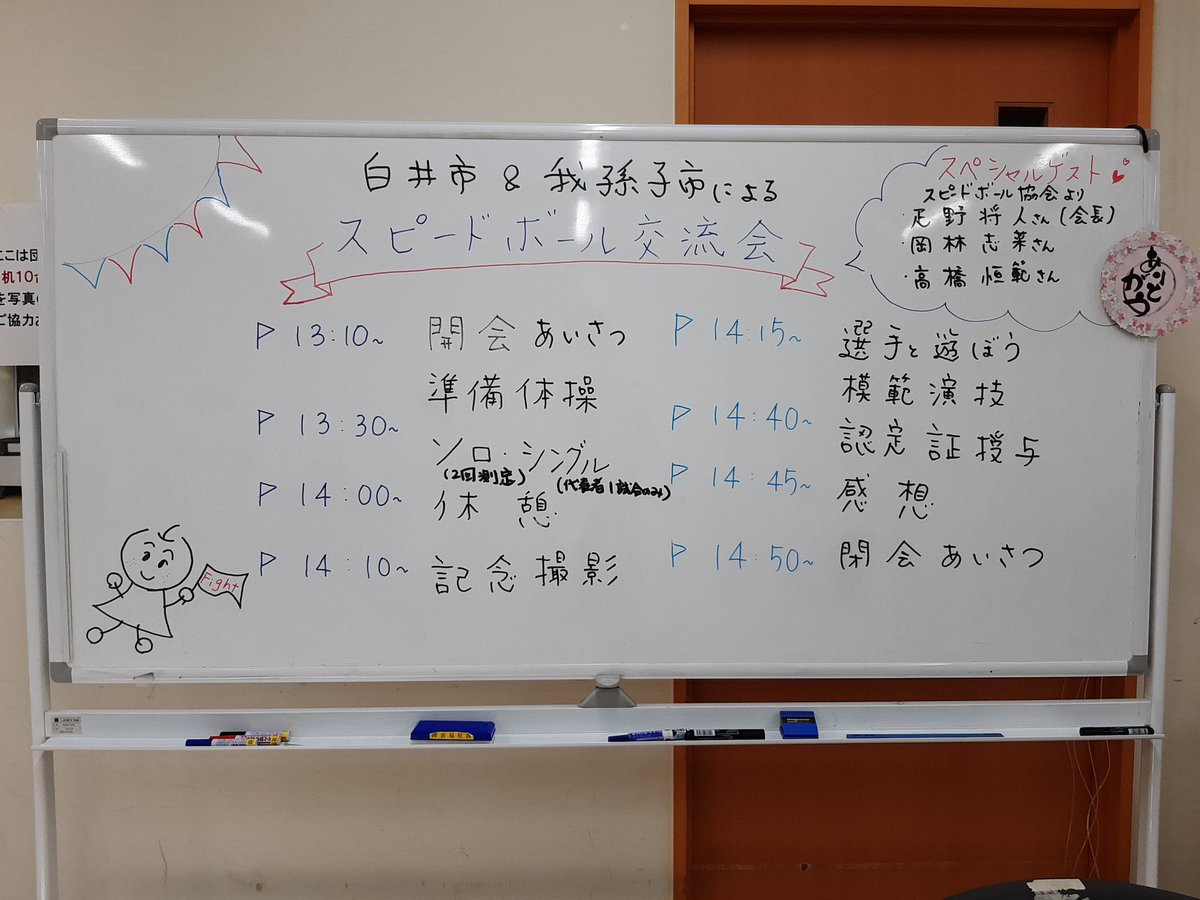 白井市 & 我孫子市による
スピードボール交流会
スペシャルゲスト
スピードボール協会より
・疋野将人さん(会長)
・岡林志菜さん
・高橋恒範さん
ありとがう
P 13:10~ 開会あいさつ
準備体操
P 13:30~ ソロ・シングル
(2回測定) (代表者1試合のみ)
P 14:00~ 休憩
P 14:10~ 記念撮影
P 14:15~ 選手と遊ぼう
模範演技
P 14:40~ 認定証授与
P 14:45~ 感想
P 14:50~ 閉会あいさつ
Fight
ここは団
机10台
を写真の
ご協力お